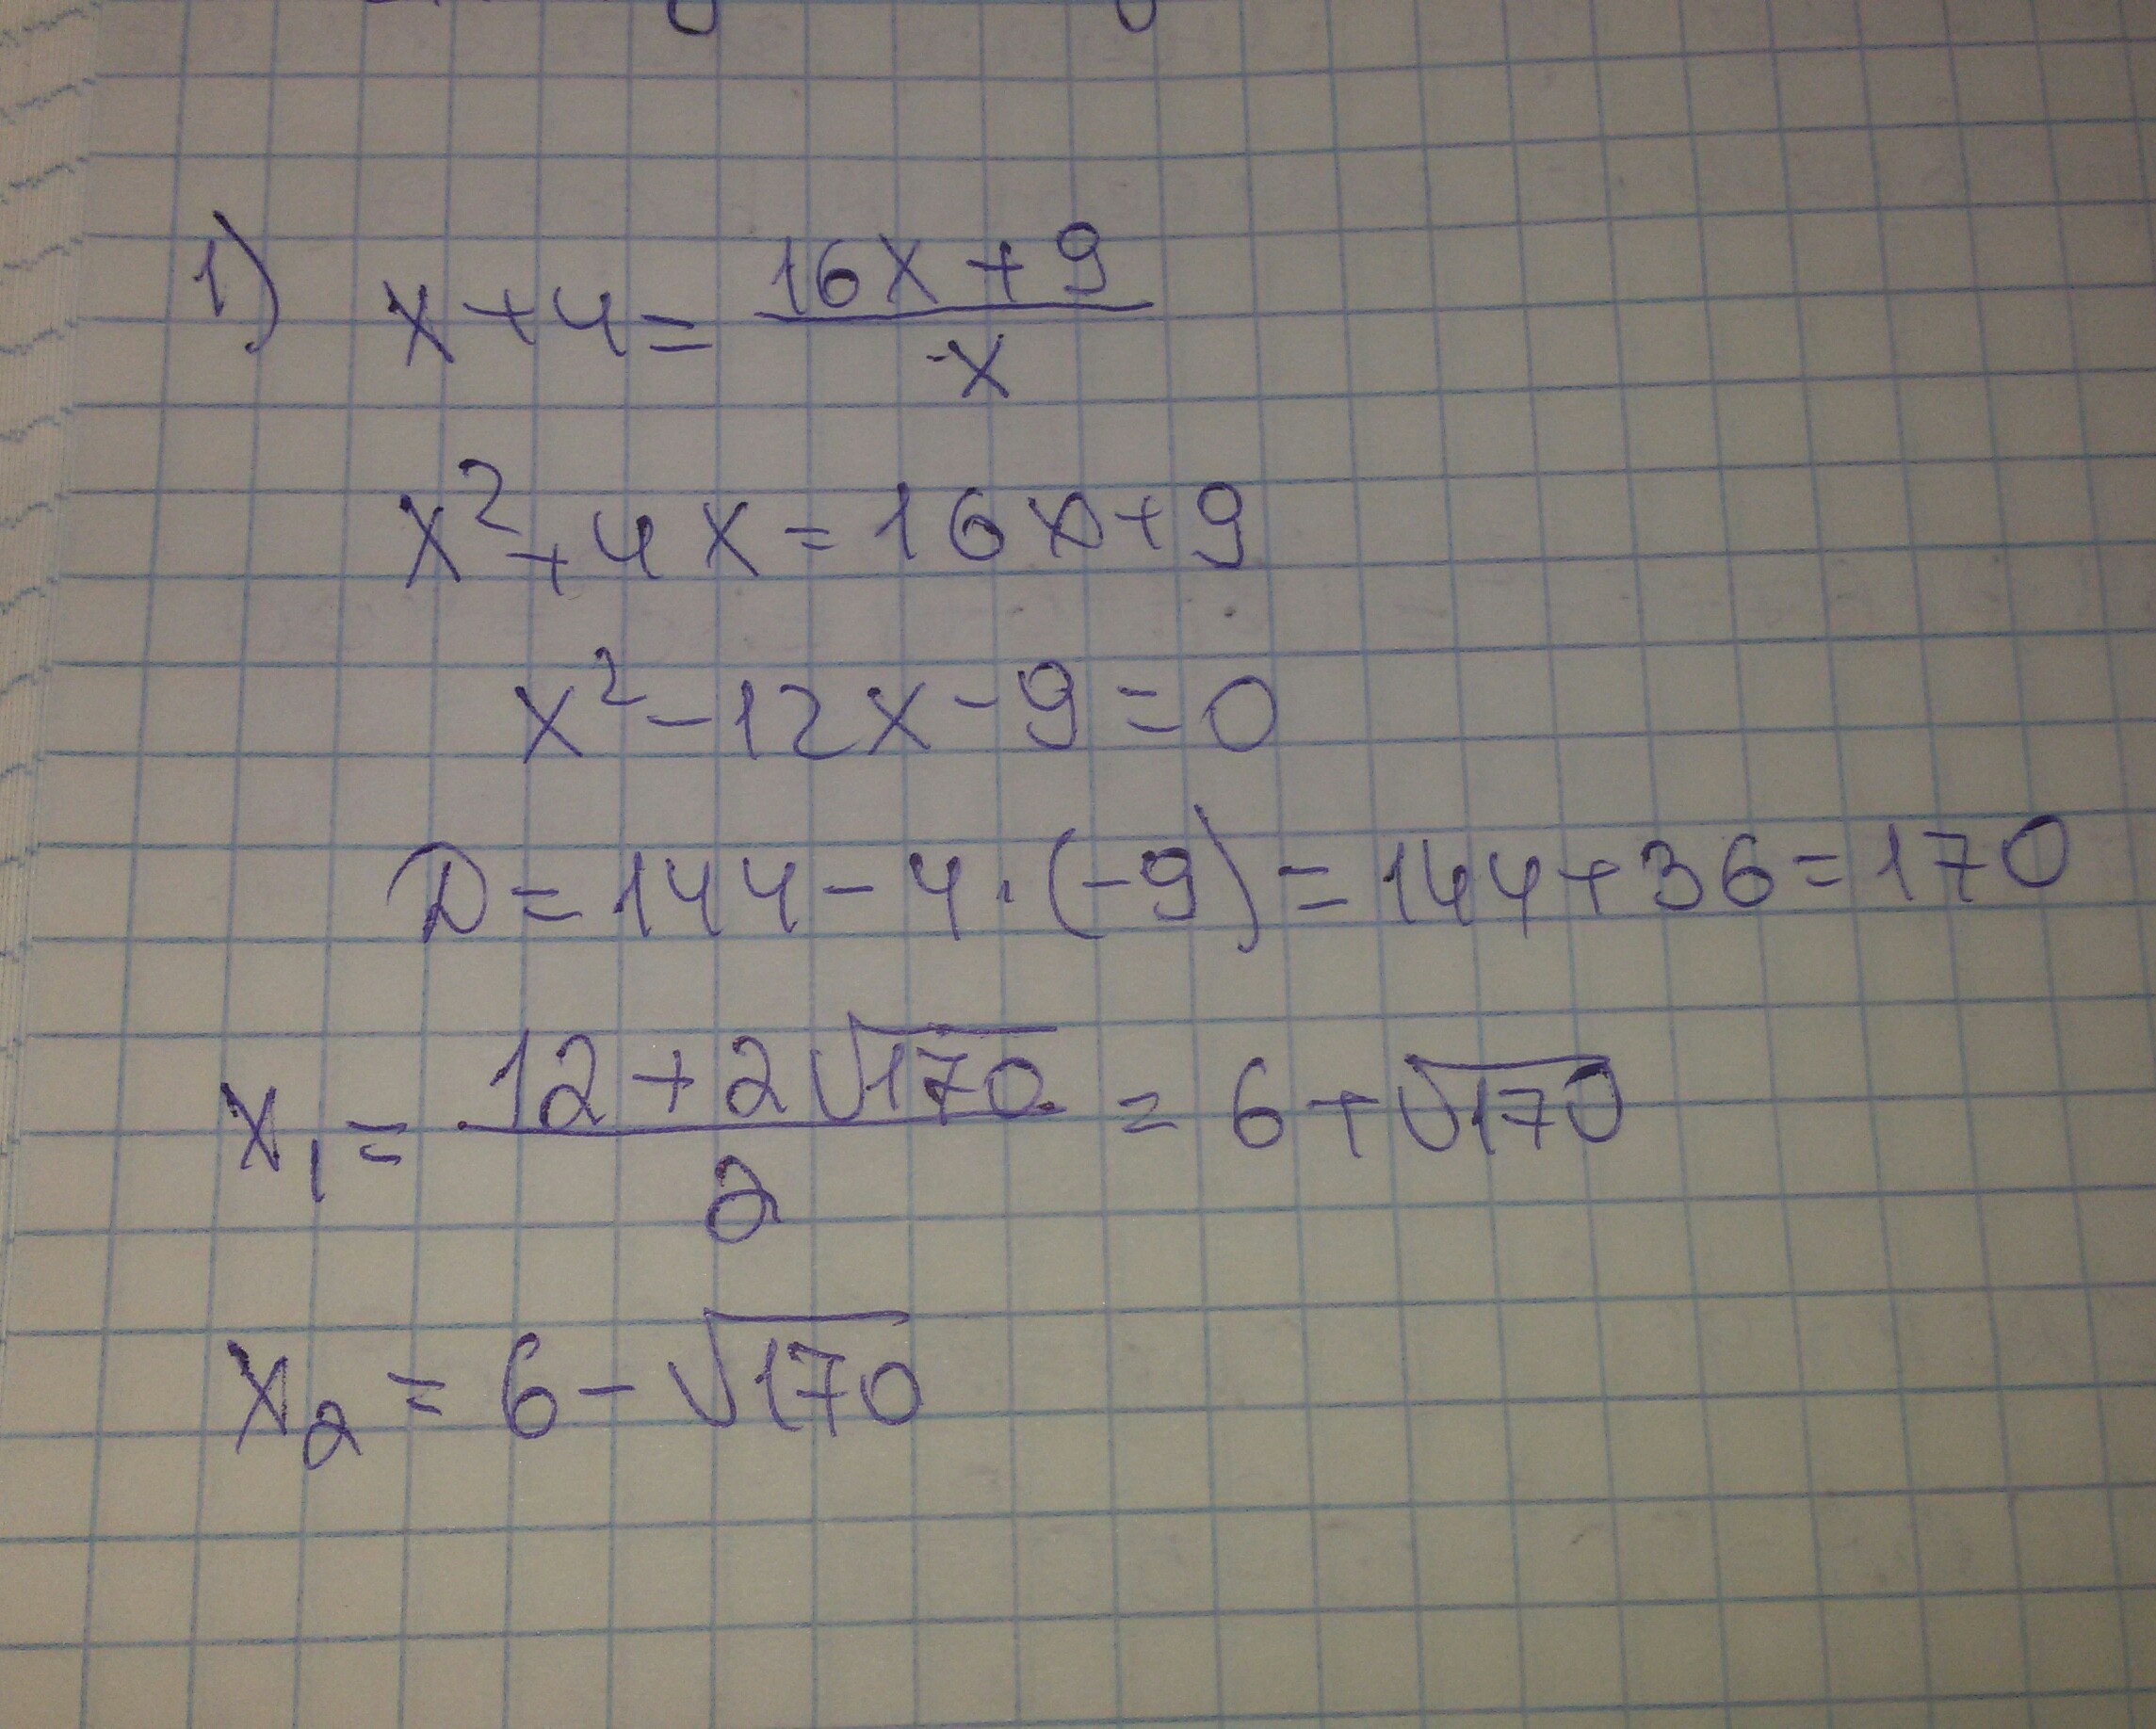 1) x+4= (16x+9)/x
x²+4x=16x+9
x²-12x-9=0
D=144-4·(-9)=144+36=170
x₁= (12+2√170)/2 = 6+√170
x₂=6-√170